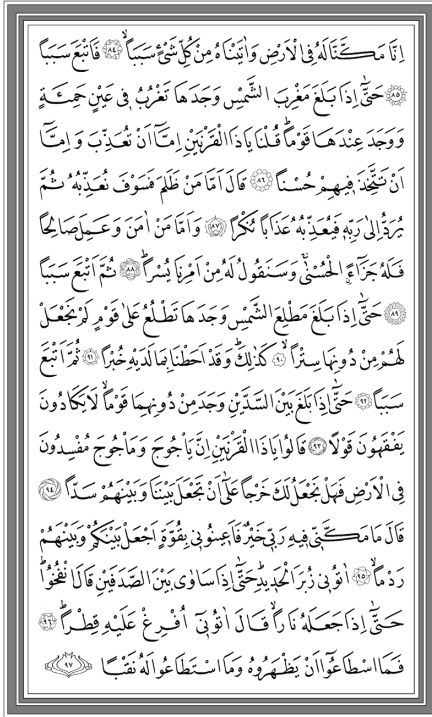 اِنَّا مَكَّنَّا لَهُ فِى الْاَرْضِ وَاٰتَيْنَاهُ مِنْ كُلِّ شَىْءٍ سَبَبًاۙ ﴿٨٤﴾ فَاَتْبَعَ سَبَبًا
﴿٨٥﴾ حَتّٰٓى اِذَا بَلَغَ مَغْرِبَ الشَّمْسِ وَجَدَهَا تَغْرُبُ فِى عَيْنٍ حَمِئَةٍ
وَوَجَدَ عِنْدَهَا قَوْمًاۜ قُلْنَا يَاذَا الْقَرْنَيْنِ اِمَّٓا اَنْ تُعَذِّبَ وَاِمَّٓا
اَنْ تَتَّخِذَ فِيهِمْ حُسْنًا ﴿٨٦﴾ قَالَ اَمَّا مَنْ ظَلَمَ فَسَوْفَ نُعَذِّبُهُ ثُمَّ
يُرَدُّ اِلٰى رَبِّهِ فَيُعَذِّبُهُ عَذَابًا نُكْرًا ﴿٨٧﴾ وَاَمَّا مَنْ اٰمَنَ وَعَمِلَ صَالِحًا
فَلَهُ جَزَٓاءًۨ الْحُسْنٰىۚ وَسَنَقُولُ لَهُ مِنْ اَمْرِنَا يُسْرًاۜ ﴿٨٨﴾ ثُمَّ اَتْبَعَ سَبَبًا
﴿٨٩﴾ حَتّٰٓى اِذَا بَلَغَ مَطْلِعَ الشَّمْسِ وَجَدَهَا تَطْلُعُ عَلٰى قَوْمٍ لَمْ نَجْعَلْ
لَهُمْ مِنْ دُونِهَا سِتْرًاۙ ﴿٩٠﴾ كَذٰلِكَۜ وَقَدْ اَحَطْنَا بِمَا لَدَيْهِ خُبْرًا ﴿٩١﴾ ثُمَّ اَتْبَعَ
سَبَبًا ﴿٩٢﴾ حَتّٰٓى اِذَا بَلَغَ بَيْنَ السَّدَّيْنِ وَجَدَ مِنْ دُونِهِمَا قَوْمًاۙ لَا يَكَادُونَ
يَفْقَهُونَ قَوْلًا ﴿٩٣﴾ قَالُوا يَاذَا الْقَرْنَيْنِ اِنَّ يَاْجُوجَ وَمَاْجُوجَ مُفْسِدُونَ
فِى الْاَرْضِ فَهَلْ نَجْعَلُ لَكَ خَرْجًا عَلٰٓى اَنْ تَجْعَلَ بَيْنَنَا وَبَيْنَهُمْ سَدًّا ﴿٩٤﴾
قَالَ مَا مَكَّنِّى فِيهِ رَبِّى خَيْرٌ فَاَعِينُونِى بِقُوَّةٍ اَجْعَلْ بَيْنَكُمْ وَبَيْنَهُمْ
رَدْمًاۙ ﴿٩٥﴾ اٰتُونِى زُبَرَ الْحَدِيدِۜ حَتّٰٓى اِذَا سَاوٰى بَيْنَ الصَّدَفَيْنِ قَالَ انْفُخُواۜ
حَتّٰٓى اِذَا جَعَلَهُ نَارًاۙ قَالَ اٰتُونِٓى اُفْرِغْ عَلَيْهِ قِطْرًاۜ ﴿٩٦﴾
فَمَا اسْطَاعُٓوا اَنْ يَظْهَرُوهُ وَمَا اسْتَطَاعُوا لَهُ نَقْبًا ﴿٩٧﴾